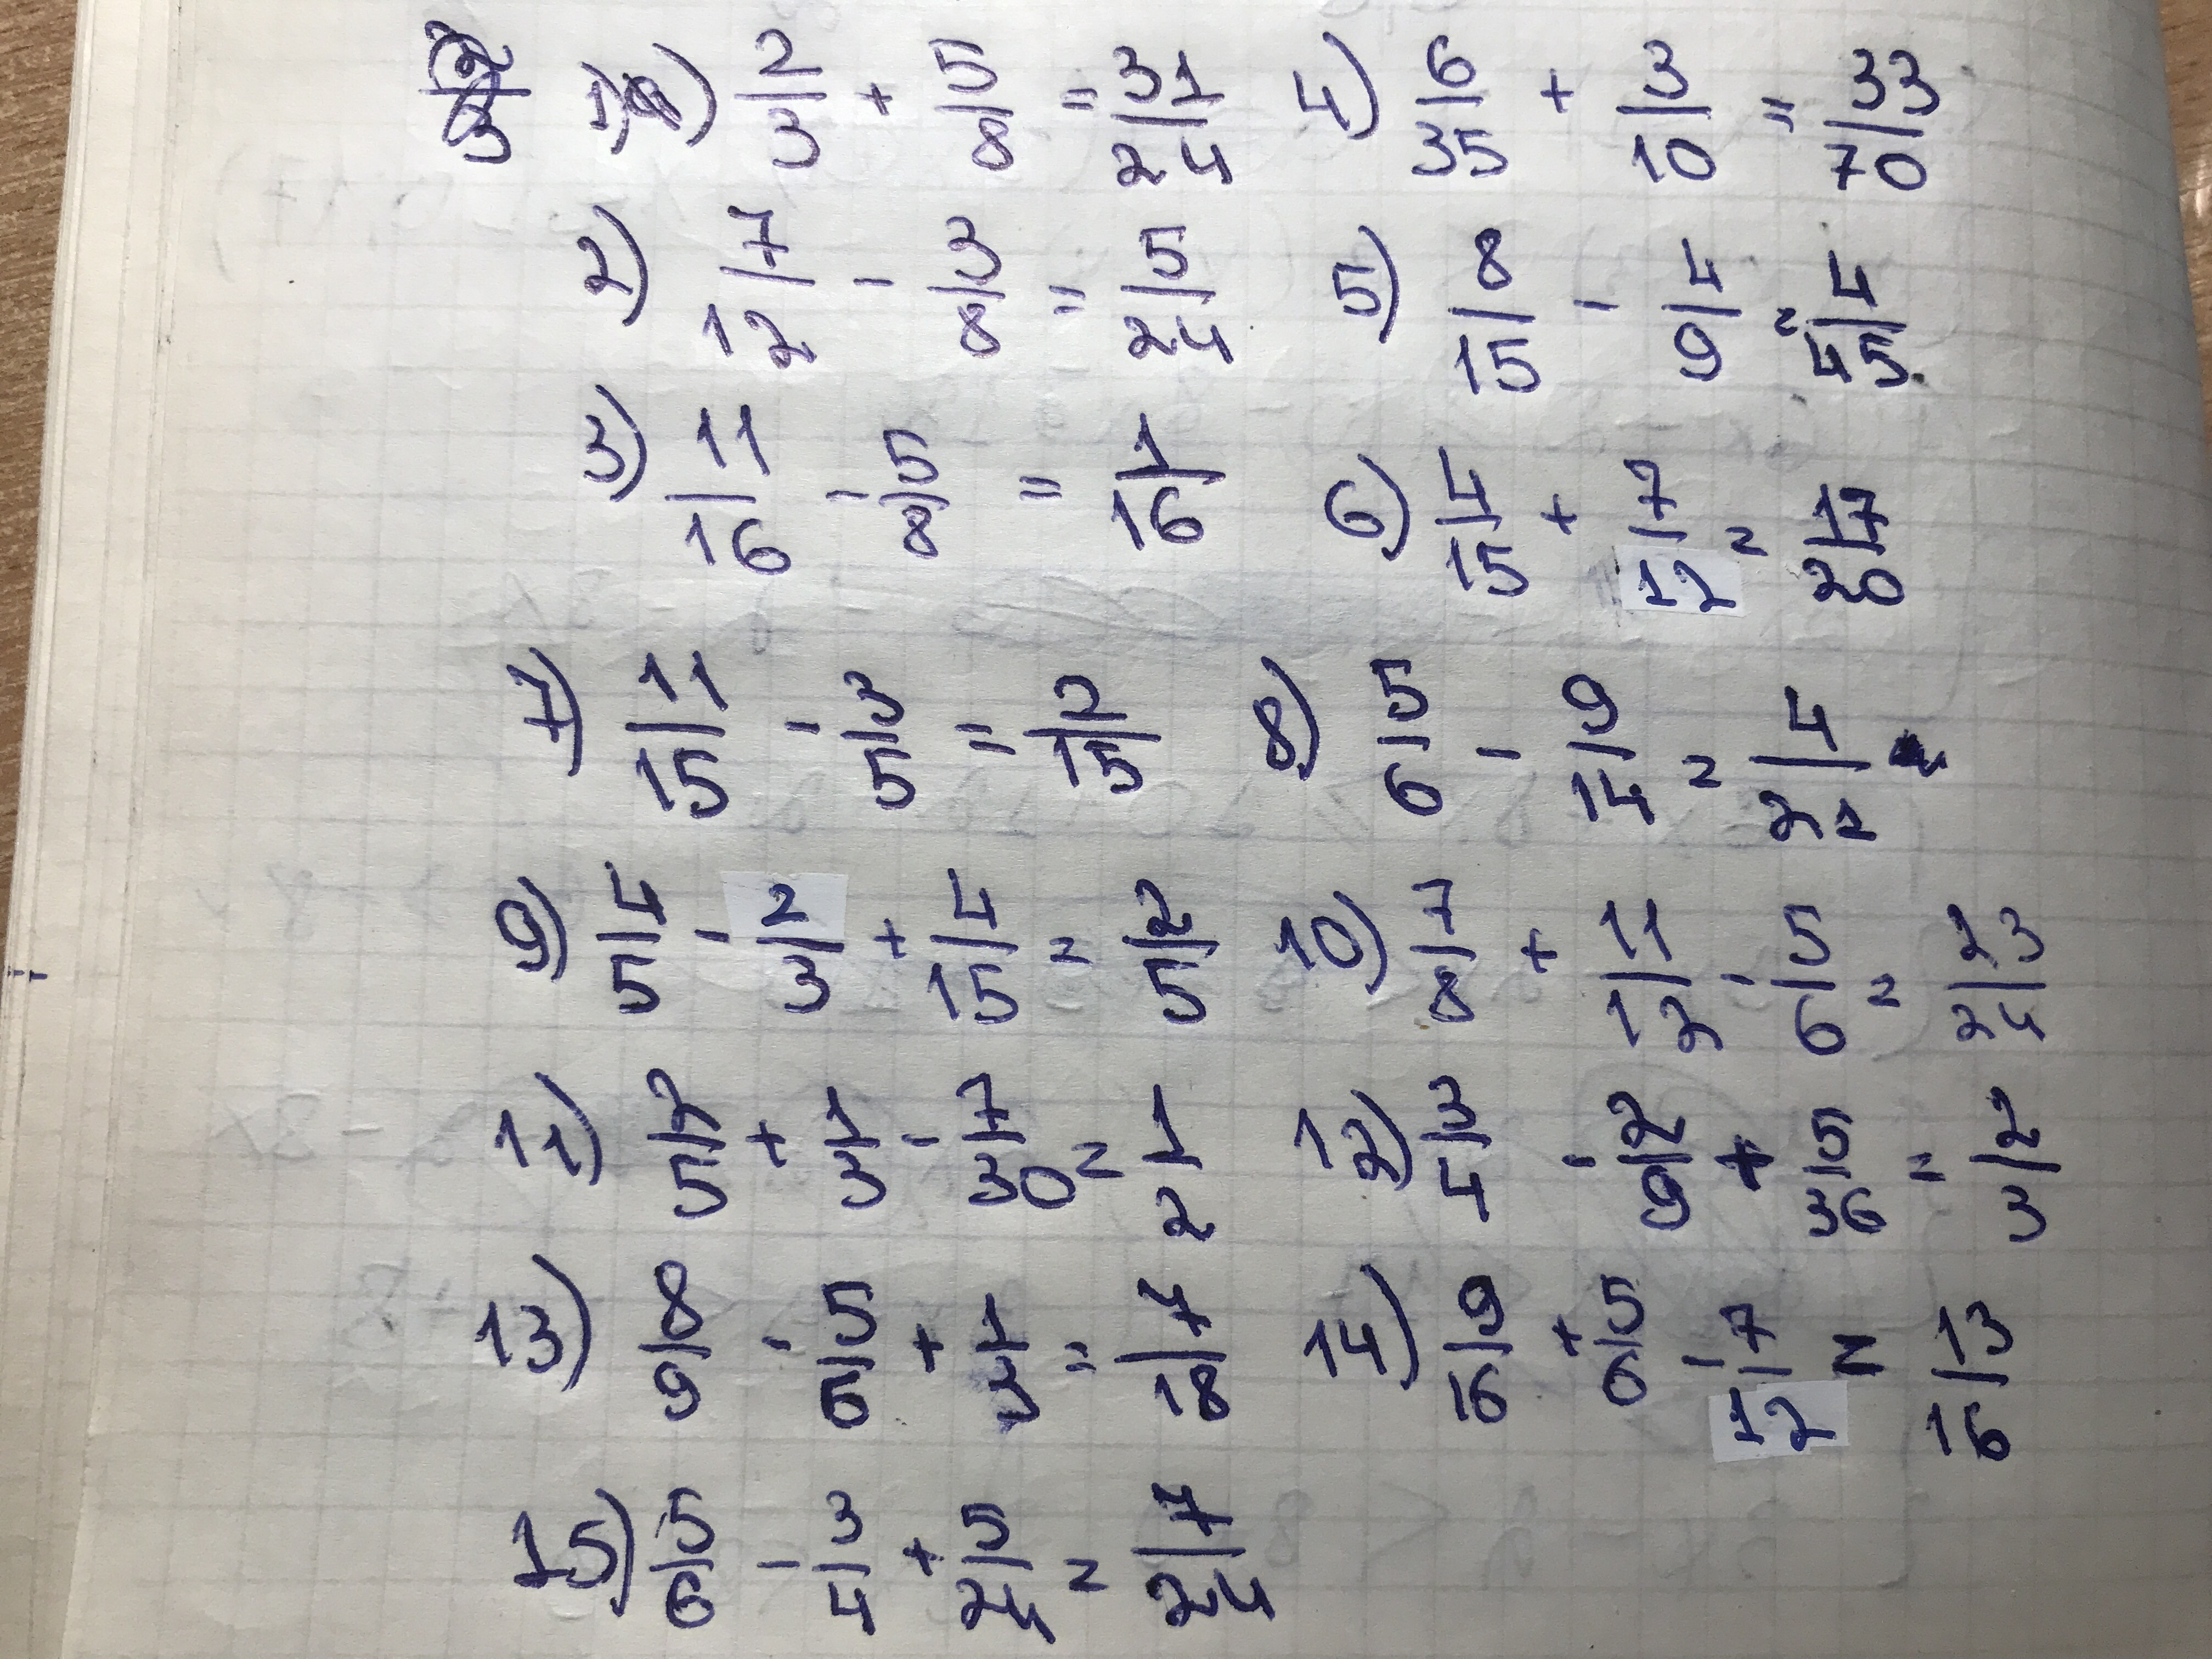 1) 2/3 + 5/8 = 31/24 4) 6/35 + 3/10 = 33/70
2) 7/12 - 3/8 = 5/24 5) 8/15 - 4/9 = 4/45
3) 11/16 - 5/8 = 1/16 6) 4/15 + 7/12 = 17/20
7) 11/15 - 3/5 = 2/15 8) 5/6 - 9/14 = 4/21
9) 4/5 - 2/3 + 4/15 = 2/5 10) 7/8 + 11/12 - 5/6 = 23/24
11) 2/5 + 1/3 - 7/30 = 1/2 12) 3/4 - 2/9 + 5/36 = 2/3
13) 8/9 - 5/6 + 1/3 = 7/18 14) 9/16 + 5/6 - 7/12 = 13/16
15) 5/6 - 3/4 + 5/24 = 7/24